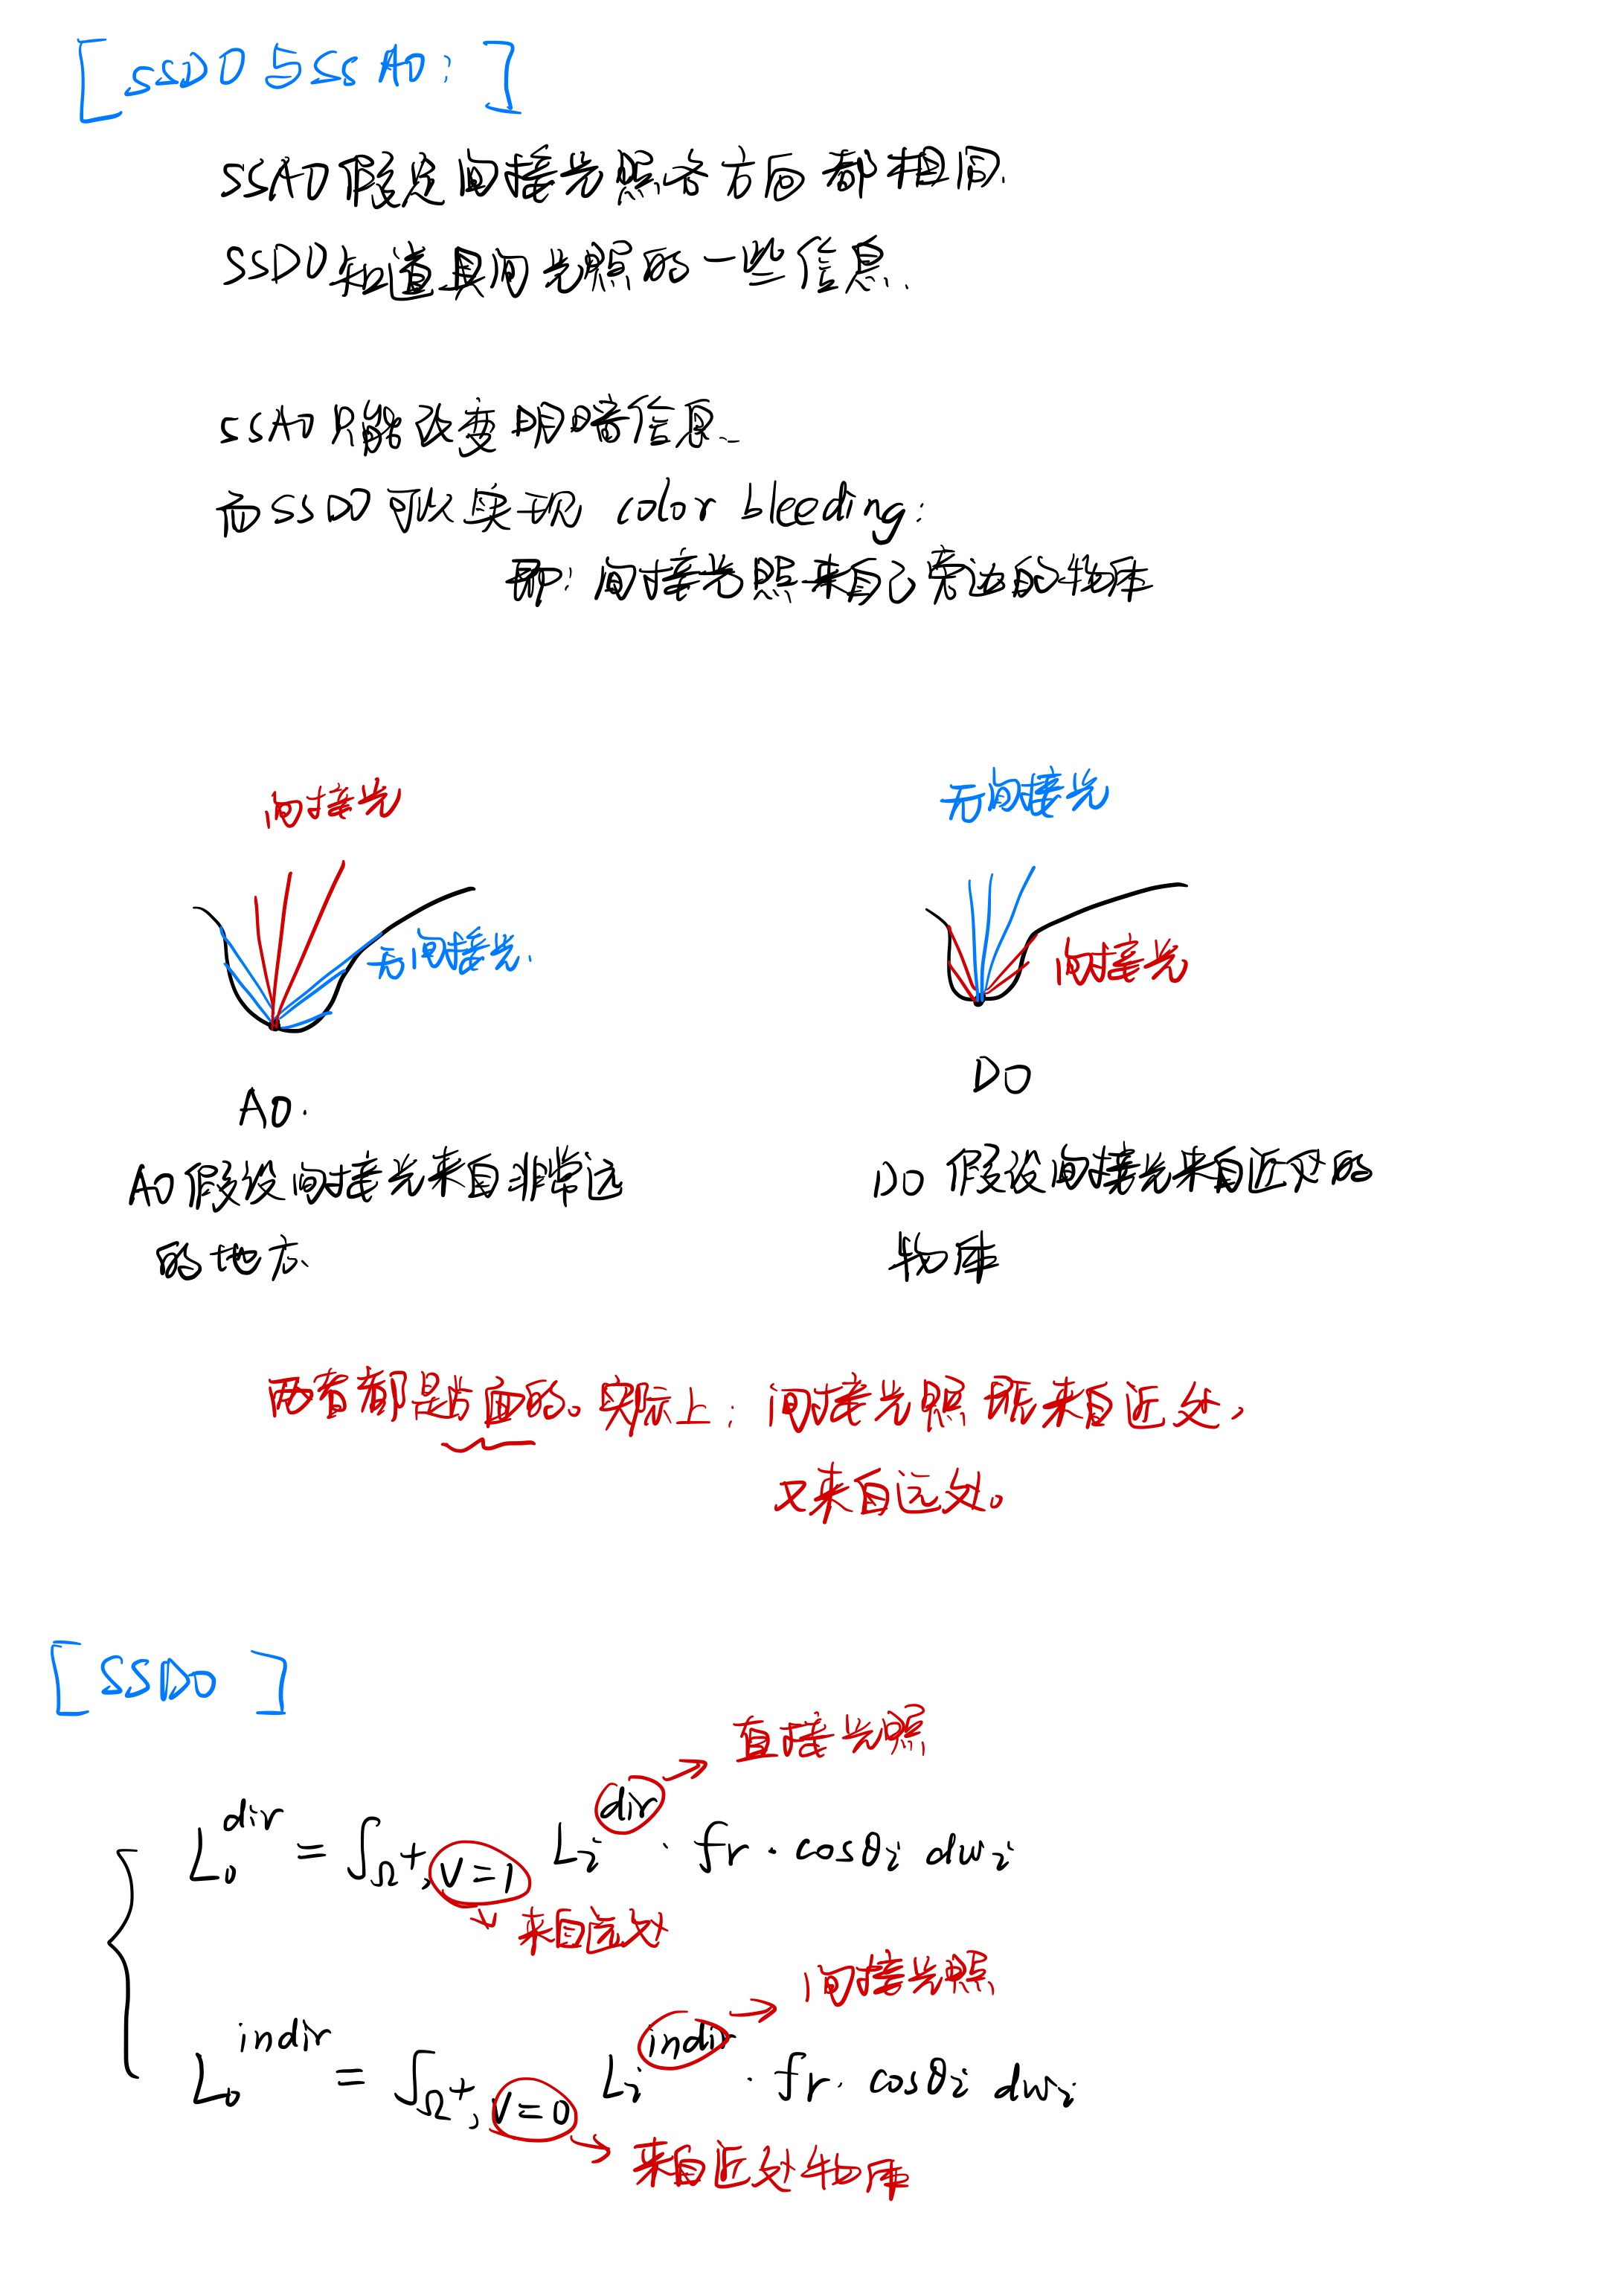 [SSDO与SSAO:]
SSAO假定间接光照各方向都相同.
SSDO知道具间光照的一些信息.
SSAO只能改变明暗信息.
而SSDO可以实现 color bleeding:
即:间接光照来自己旁边的物体
间接光
无间接光.
无间接光
间接光
AO.
DO
AO假设间接光来自非常远
的地方.
DO 假设间接光来自近处的
物体
两者都是片面的。实际上:间接光照既来自近处,
又来自远处。
[SSDO]
直接光照
L_o^{dir} = ∫_{Ω+, V=1} L_i^{dir} · fr · cosθi dωi
来自远处
间接光照
L_o^{indir} = ∫_{Ω+, V=0} L_i^{indir} · fr · cosθi dωi
来自近处物体